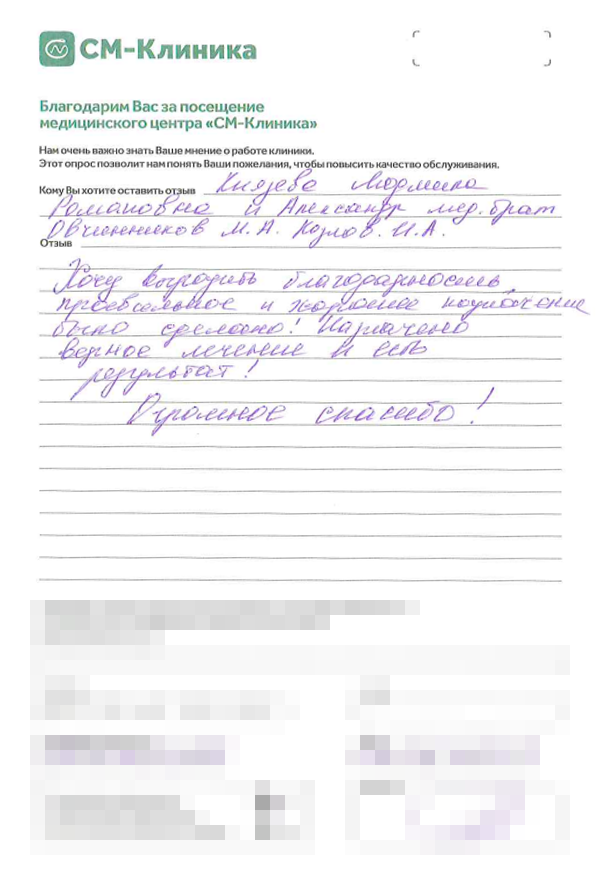 СМ-Клиника
Благодарим Вас за посещение
медицинского центра «СМ-Клиника»
Нам очень важно знать Ваше мнение о работе клиники.
Этот опрос позволит нам понять Ваши пожелания, чтобы повысить качество обслуживания.
Кому Вы хотите оставить отзыв Князева Людмила
Романовна и Александр мед. брат
Овчинников М.А. Козлов И.А.
Отзыв
Хочу выразить благодарность,
правильное и хорошее
было сделано! Назначено
верное лечение и есть
результат!
Огромное спасибо!